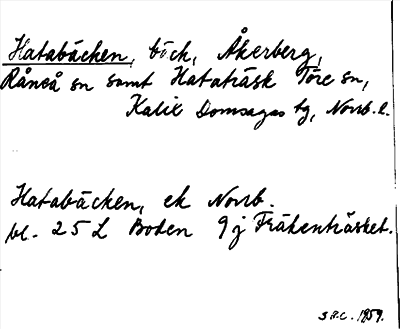 Hatabäcken, bäck, Åkerberg,
Råneå sn samt Hataträsk Töre sn,
Kalix Domsagas tg, Norrb. l.
Hatabäcken, ek Norrb.
bl. 25 L Boden 9 j Fräkenträsket.
1959.